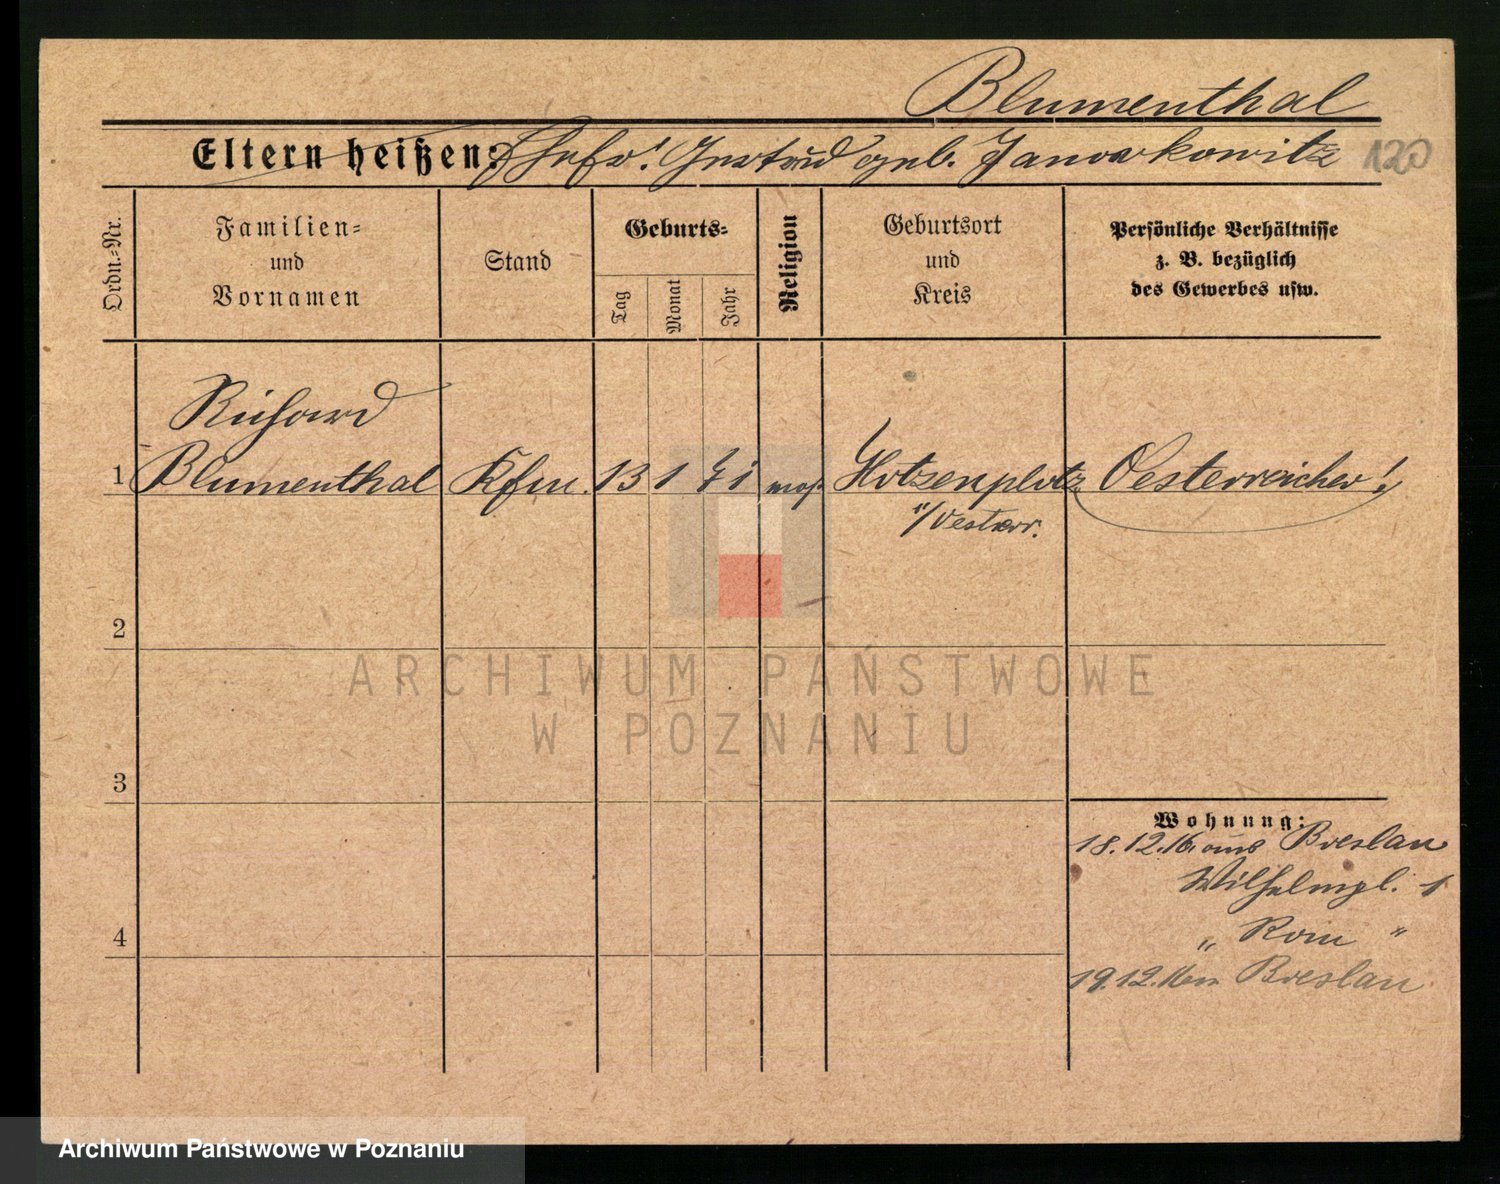 Blumenthal
Eltern heißen: Ehefr! Gertrud geb. Janowkowitz 120
Ordn.-Nr.
Familien-
und
Vornamen
Stand
Geburts-
Tag
Monat
Jahr
Religion
Geburtsort
und
Kreis
Persönliche Verhältnisse
z. B. bezüglich
des Gewerbes usw.
Richard
1 Blumenthal Kfm. 13 1 71 mos. Hotzenplotz Oesterreicher!
i/Oesterr.
2
ARCHIWUM PAŃSTWOWE
W POZNANIU
3
Wohnung:
18.12.16 aus Breslau
Wilhelmpl. 1
4
" Rom "
19.12.16 n Breslau
Archiwum Państwowe w Poznaniu